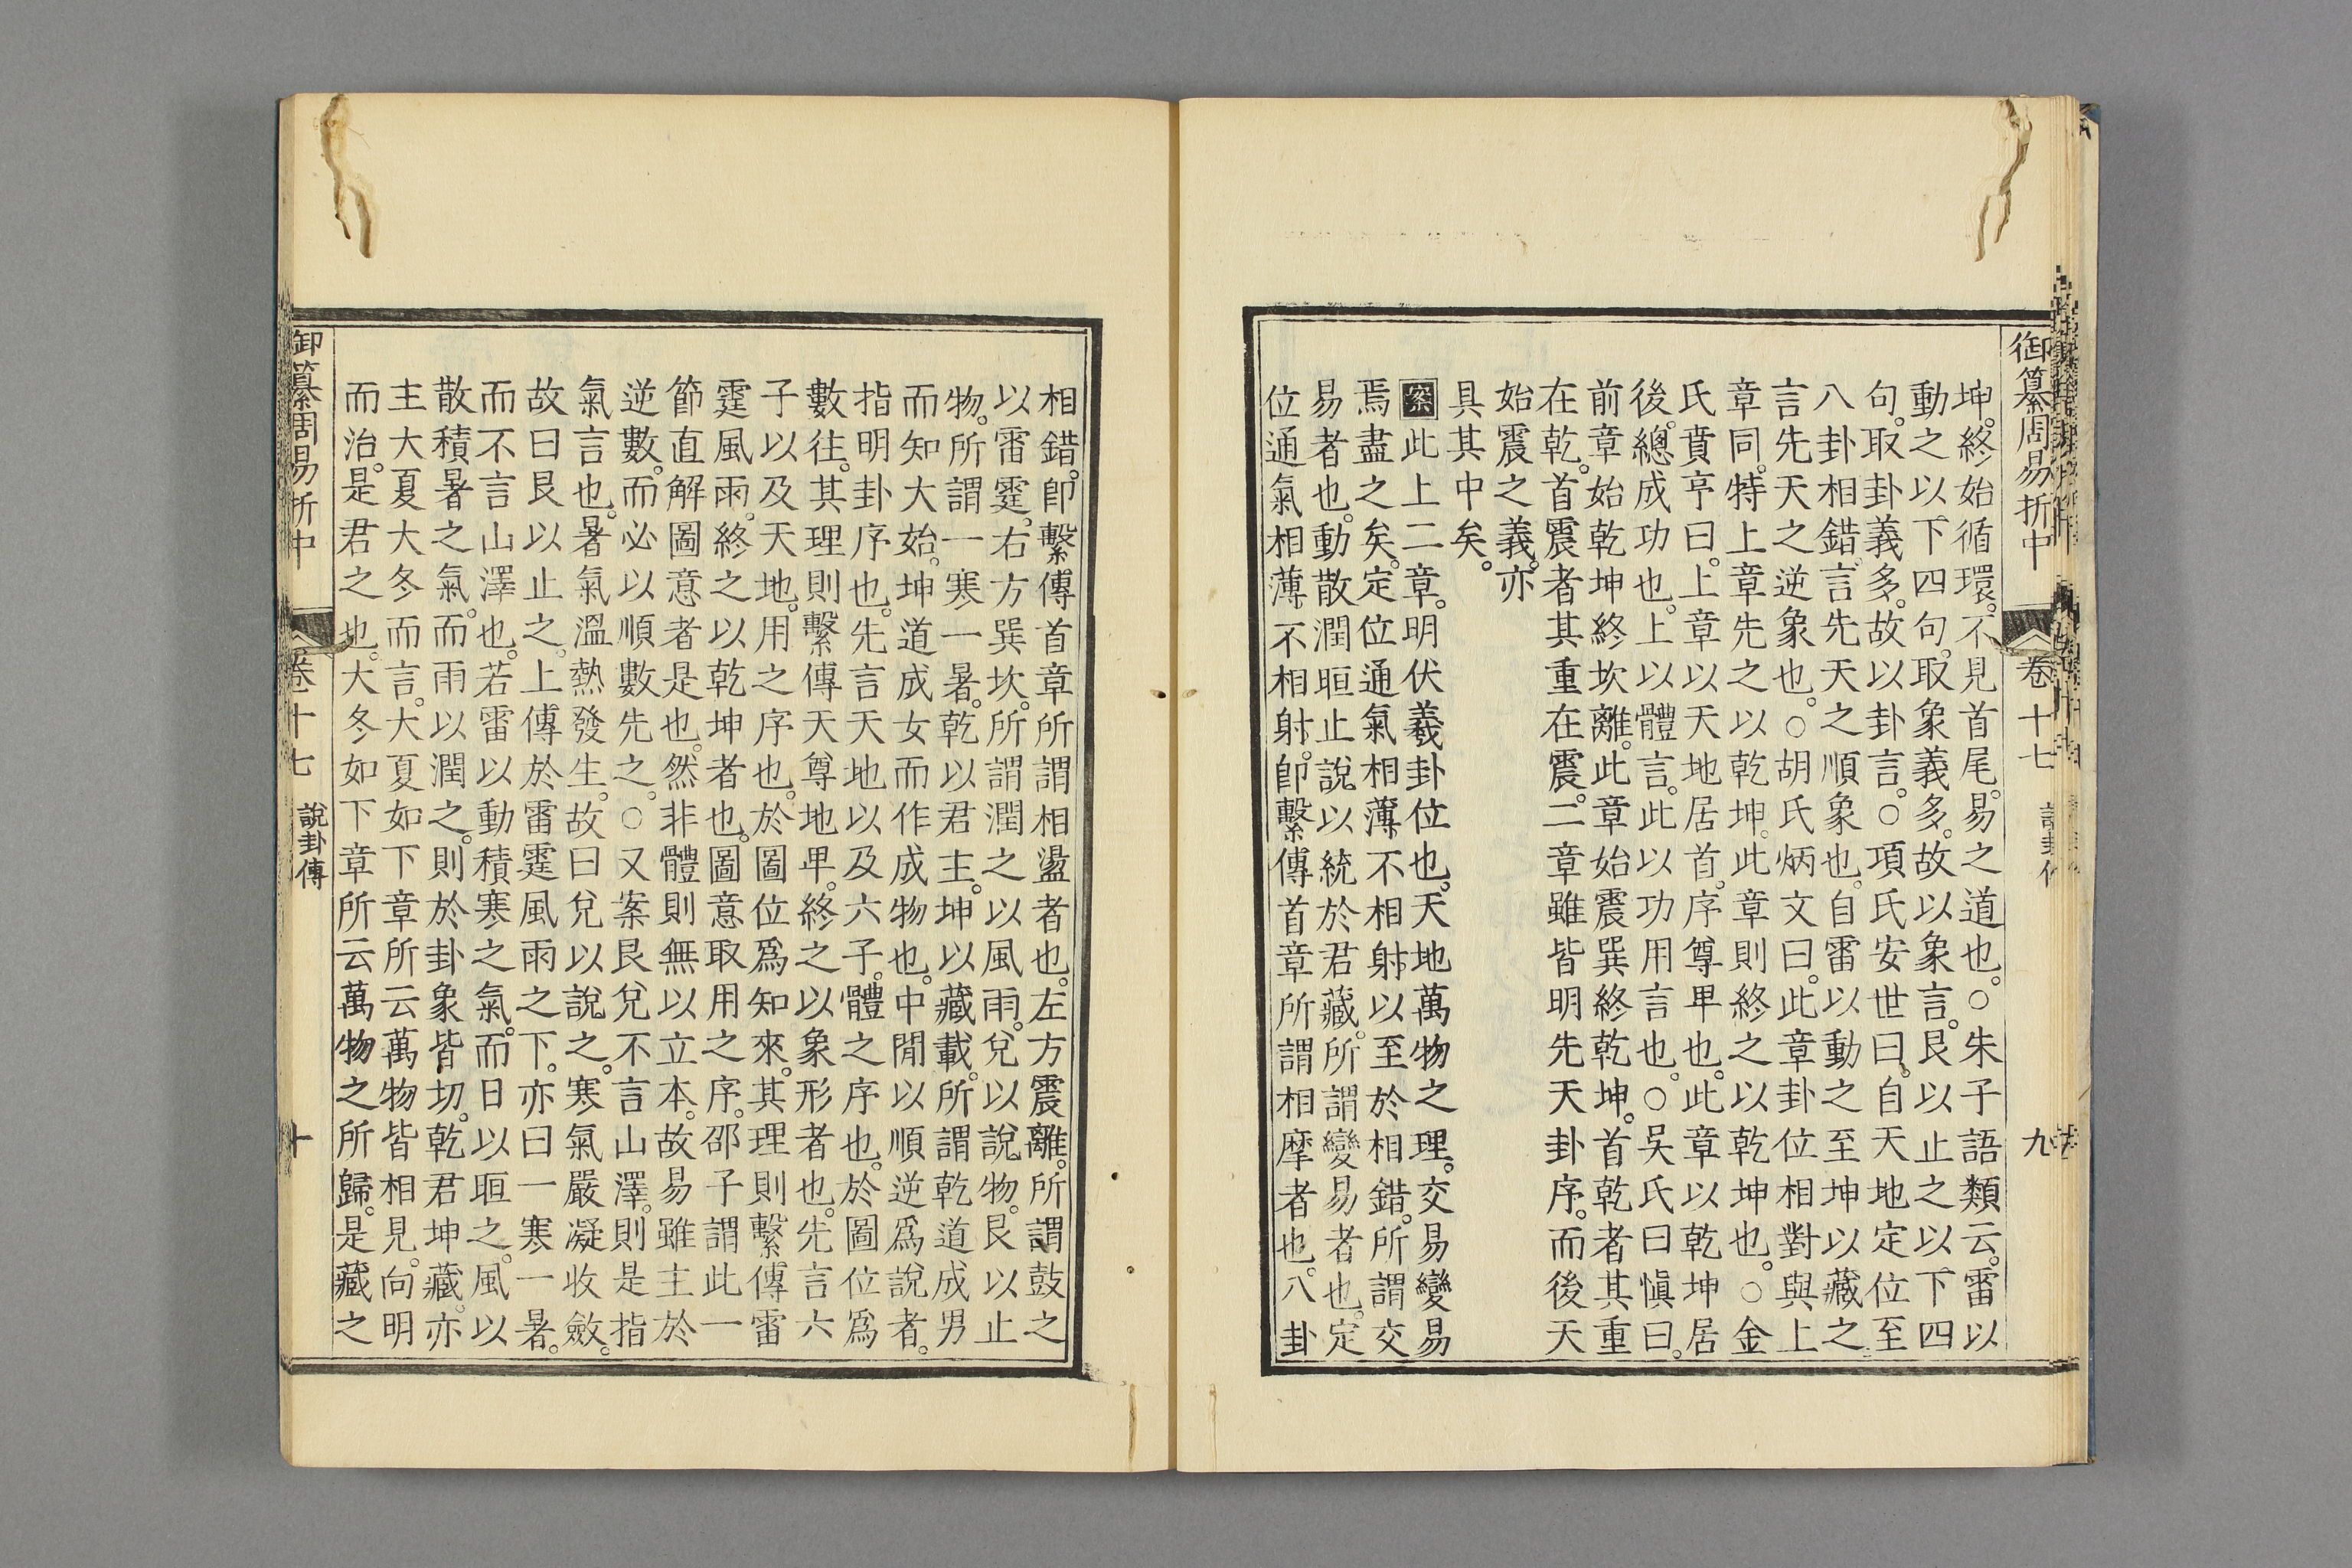 御纂周易折中
卷十七
九
坤。終始循環。不見首尾。易之道也。○朱子語類云。雷以
動之以下四句。取象義多。故以象言。艮以止之以下四
句。取卦義多。故以卦言。○項氏安世曰。自天地定位至
八卦相錯。言先天之順象也。自雷以動之至坤以藏之
言先天之逆象也。○胡氏炳文曰。此章卦位相對與上
章同。特上章先之以乾坤。此章則終之以乾坤也。○金
氏賁亨曰。上章以天地居首。序尊卑也。此章以乾坤居
後。總成功也。上以體言。此以功用言也。○吳氏曰愼曰。
前章始乾坤終坎離。此章始震巽終乾坤。首乾者其重
在乾。首震者其重在震。二章雖皆明先天卦序。而後天
始震之義。亦
具其中矣。
案此上二章。明伏羲卦位也。天地萬物之理。交易變易
焉盡之矣。定位通氣相薄不相射以至於相錯。所謂交
易者也。動散潤晅止說。以統於君藏。所謂變易者也。定
位通氣相薄不相射。卽繫傳首章所謂相摩者也。八卦
相錯。卽繫傳首章所謂相盪者也。左方震離。所謂鼓之
以雷霆。右方巽坎。所謂潤之以風雨。兌以說物。艮以止
物。所謂一寒一暑。乾以君主。坤以藏載。所謂乾道成男
而知大始。坤道成女而作成物也。中閒以順逆爲說者。
指明卦序也。先言天地以及六子。體之序也。於圖位爲
數往。其理則繫傳天尊地卑。終之以象形者也。先言六
子以及天地。用之序也。於圖位爲知來。其理則繫傳雷
霆風雨。終之以乾坤者也。圖意取用之序。邵子謂此一
節直解圖意者是也。然非體則無以立本。故易雖主於
逆數。而必以順數先之。○又案艮兌不言山澤。則是指
氣言也。暑氣溫熱發生。故曰兌以說之。寒氣嚴凝收斂。
故曰艮以止之。上傳於雷霆風雨之下。亦曰一寒一暑。
而不言山澤也。若雷以動積寒之氣。而日以晅之。風以
散積暑之氣。而雨以潤之。則於卦象皆切。乾君坤藏。亦
主大夏大冬而言。大夏如下章所云萬物皆相見。向明
而治。是君之也。大冬如下章所云萬物之所歸。是藏之
御纂周易折中
卷十七
說卦傳
十